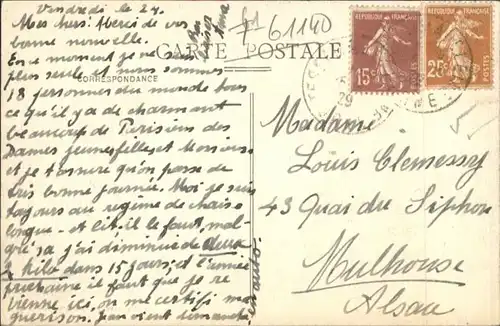 Vendredi le 24.
Mes chers! Merci de vos
bonne nouvelle.
En ce moment je ne suis
plus seule et nous sommes
18 personnes du monde tous
ce qu'il y a de charmant
beaucoup de Parisiens des
Dames jeunes filles et Messieurs
et je t'assure qu'on passe de
très bonne journée. Moi je suis
toujours au régime de chaise
longue - et lit, il le faut, mal-
gré sa j'ai diminuer de deux
kilo dans 15 jours, et l'année
prochaine il faut que je re
vienne ici, on me certifi ma
guerison. Jean vient dimanche
en auto.
CARTE POSTALE
CORRESPONDANCE
61140
RÉPUBLIQUE FRANÇAISE
15c
POSTES
RÉPUBLIQUE FRANÇAISE
25c
POSTES
29
Madame
Louis Clemessy
43 Quai du Siphon
Mulhouse
Alsace